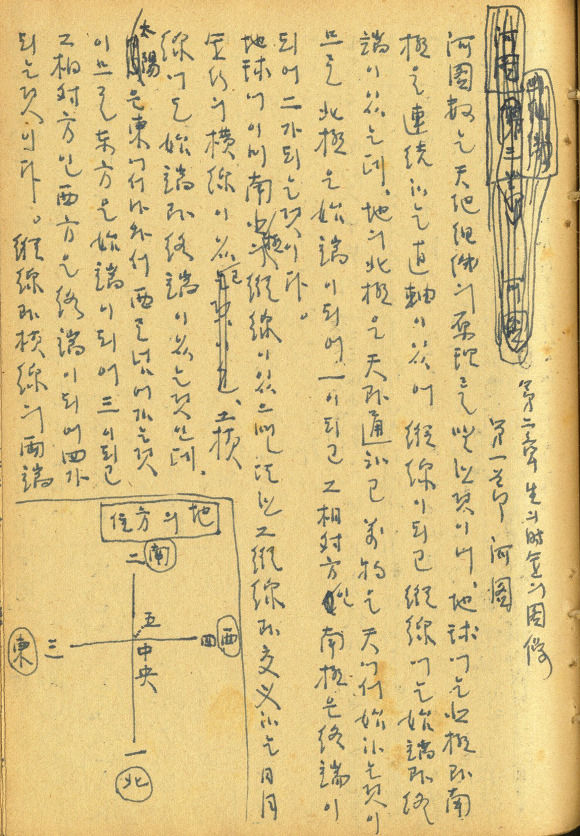 第二章 生의 時空의
第一节 河图
河図数는 天地組織의 原理를 한것이니, 地球에는 北極과 南
極을 連続하는 直軸이 있어 縱線이되고 縱線에는 始端과 終
端이 있는데. 地의 北極은 天과 通하고 萬物은 天에서 始하는것이
므로 北極은 始端이 되어 一이되고 그 相対方인 南極은 終端이
되어 二가되는것이다。
地球에 이미 南北極 縱線이 있으면 그 縱線과 交叉하는 日月
行의 橫線이 있 그 橫
線에도 始端과 終端이 있는것인데.
太陽은 東에서 나와서 西로 넘어가는것
이므로 東方은 始端이되어 三이되고
그 相対方인 西方은 終端이되어 四가
되는것이다。縱線과 橫線의 両端
地의 方位
二 南
四 西
五 中央
三 東
一 北